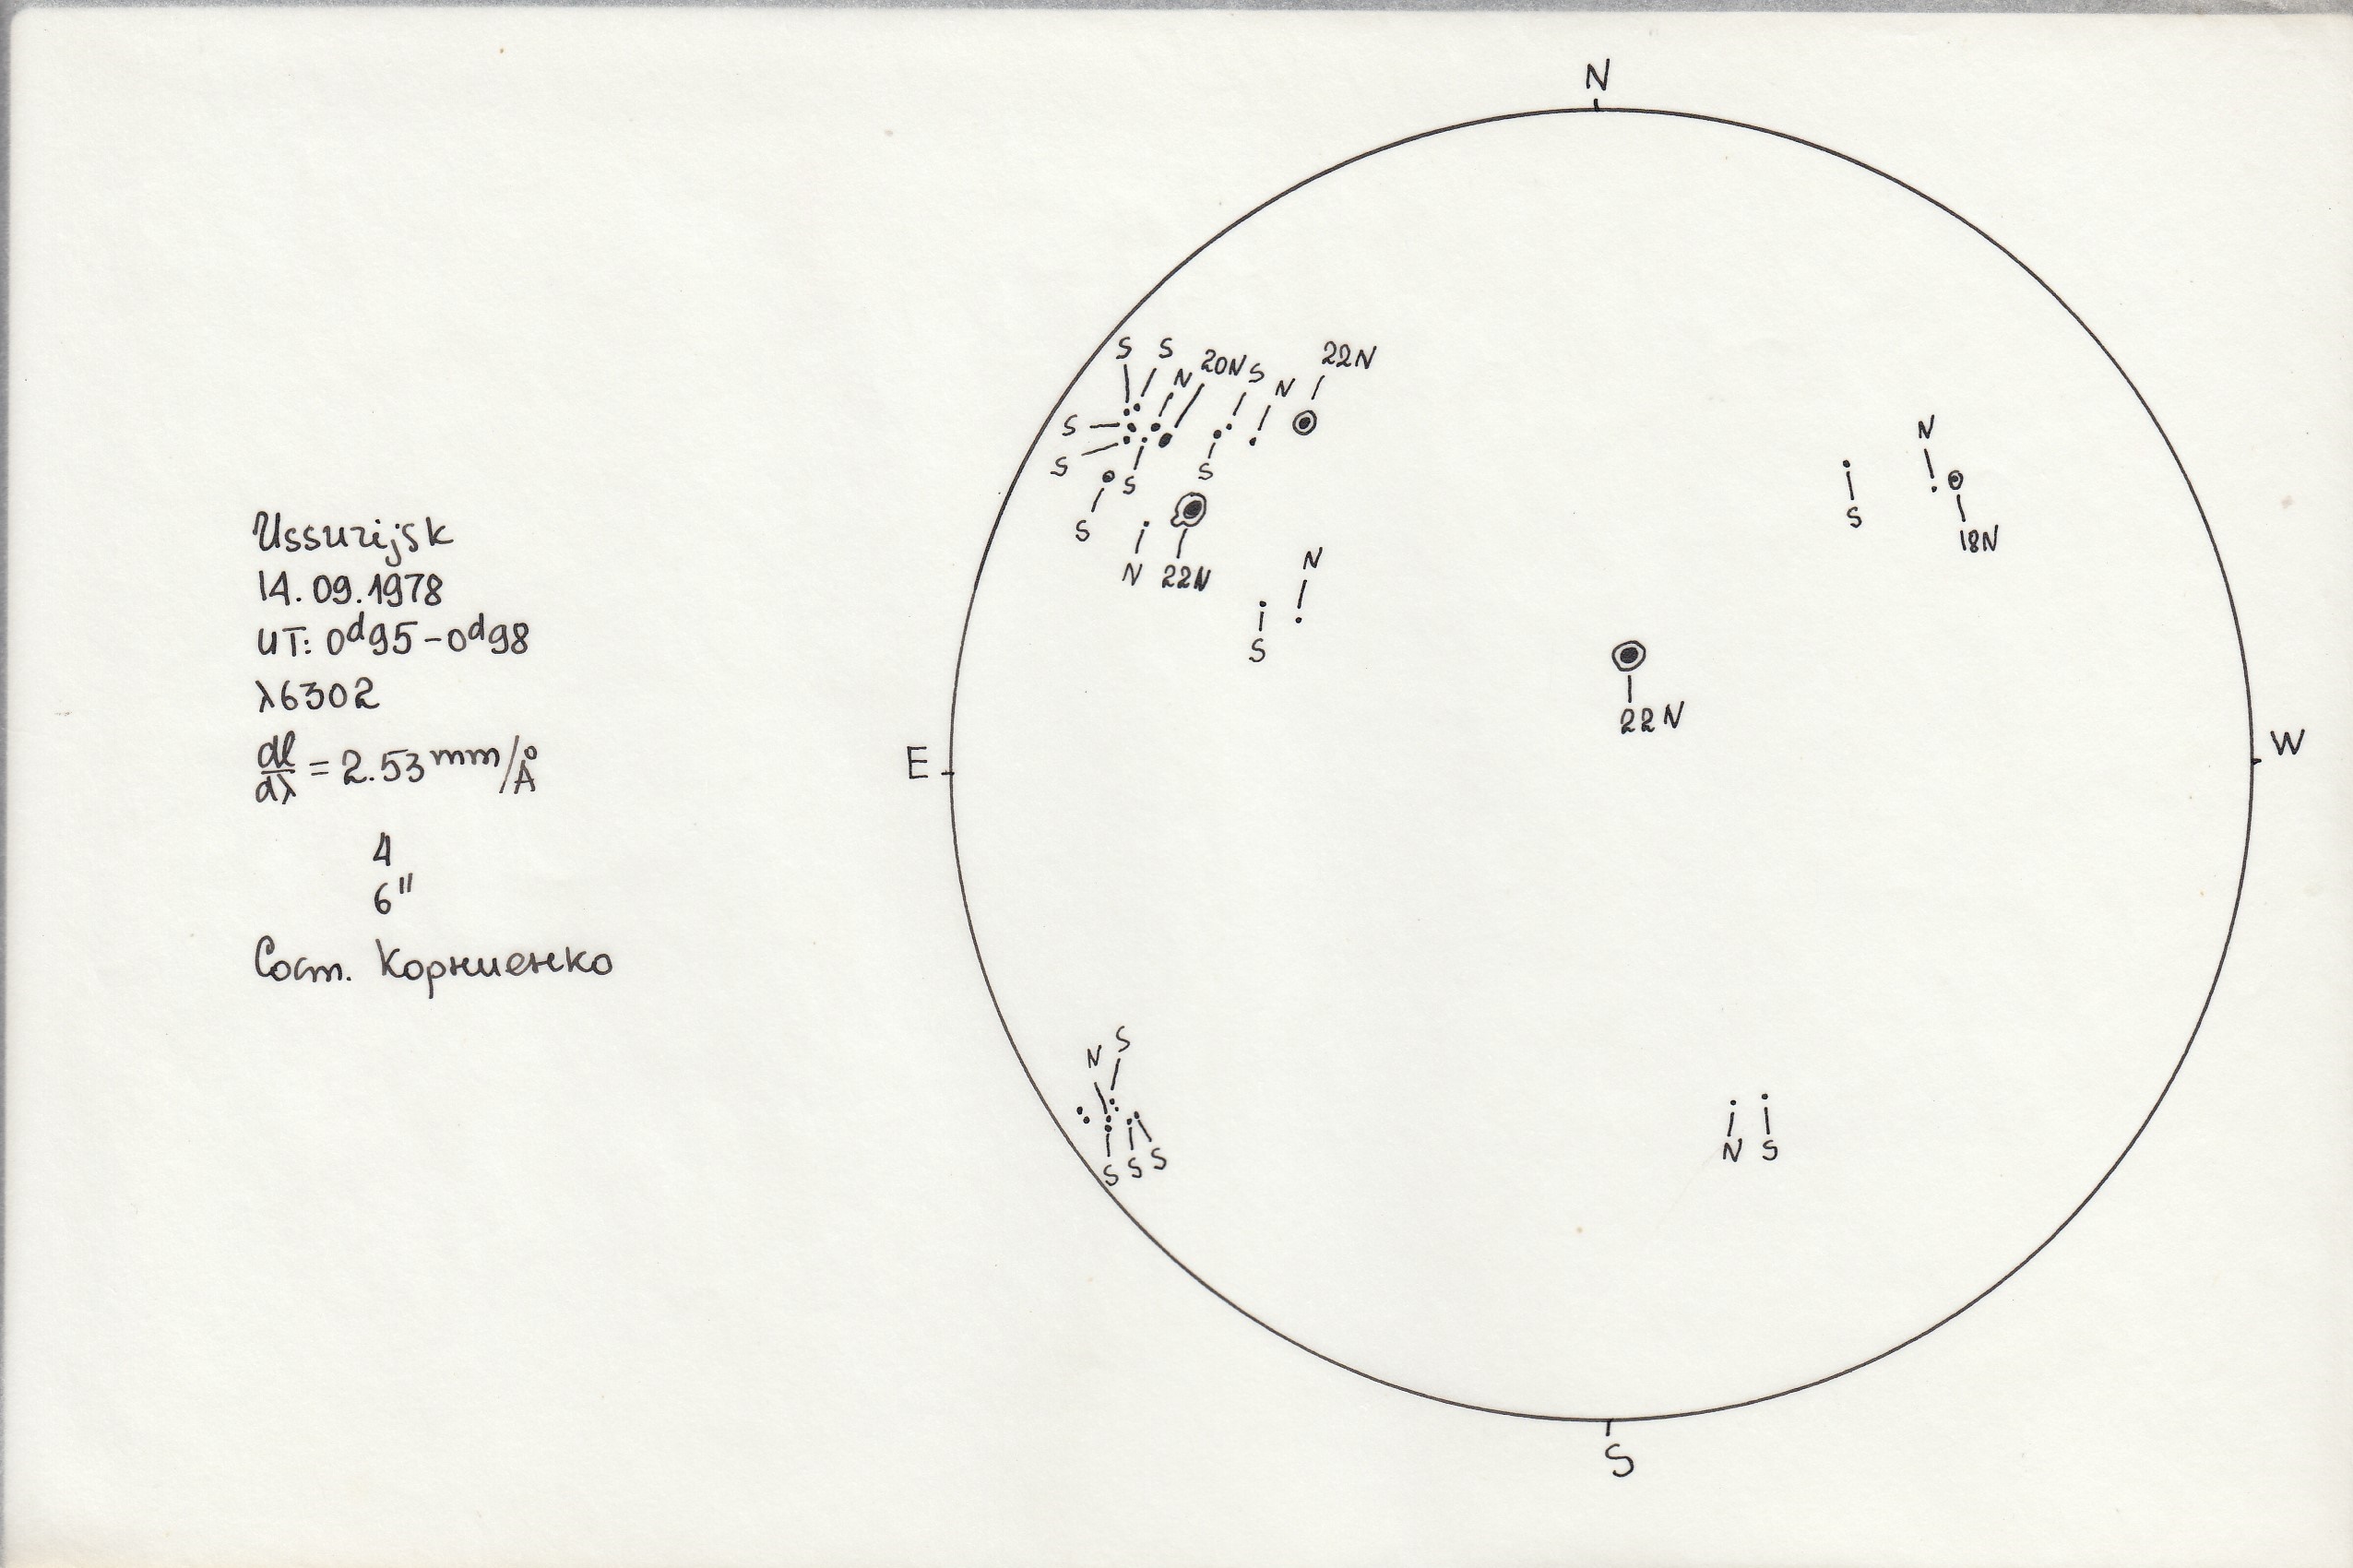 Ussurijsk
14.09.1978
UT: 0ᵈ95 – 0ᵈ98
λ6302
dl/dλ = 2.53 mm/Å
4
6"
Сост. Корниенко
N
S S N 20N S N 22N
S
S S S
S
N 22N
N
S
N
S
18N
22N
E
W
N S
S S S
N S
S